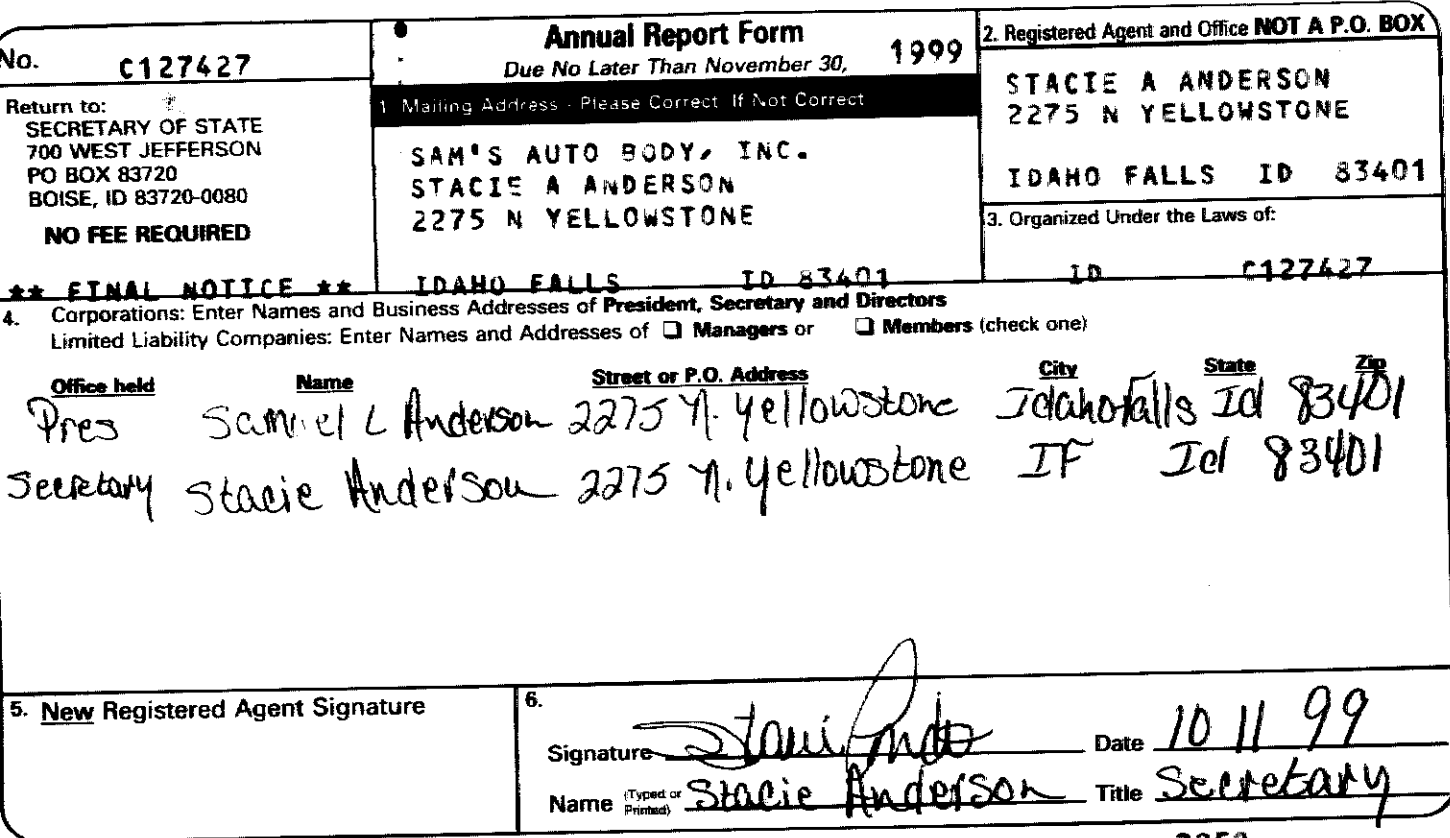 No. C127427
Return to:
SECRETARY OF STATE
700 WEST JEFFERSON
PO BOX 83720
BOISE, ID 83720-0080
NO FEE REQUIRED
** FINAL NOTICE **
Annual Report Form 1999
Due No Later Than November 30,
1 Mailing Address - Please Correct If Not Correct
SAM'S AUTO BODY, INC.
STACIE A ANDERSON
2275 N YELLOWSTONE
IDAHO FALLS ID 83401
2. Registered Agent and Office NOT A P.O. BOX
STACIE A ANDERSON
2275 N YELLOWSTONE
IDAHO FALLS ID 83401
3. Organized Under the Laws of:
ID C127427
4. Corporations: Enter Names and Business Addresses of President, Secretary and Directors
Limited Liability Companies: Enter Names and Addresses of ❏ Managers or ❏ Members (check one)
Office held Name Street or P.O. Address City State Zip
Pres Samuel L Anderson 2275 N. Yellowstone Idaho falls Id 83401
Secretary Stacie Anderson 2275 N. Yellowstone IF Id 83401
5. New Registered Agent Signature
6.
Signature Date 10 11 99
Name (Typed or Printed) Stacie Anderson Title Secretary